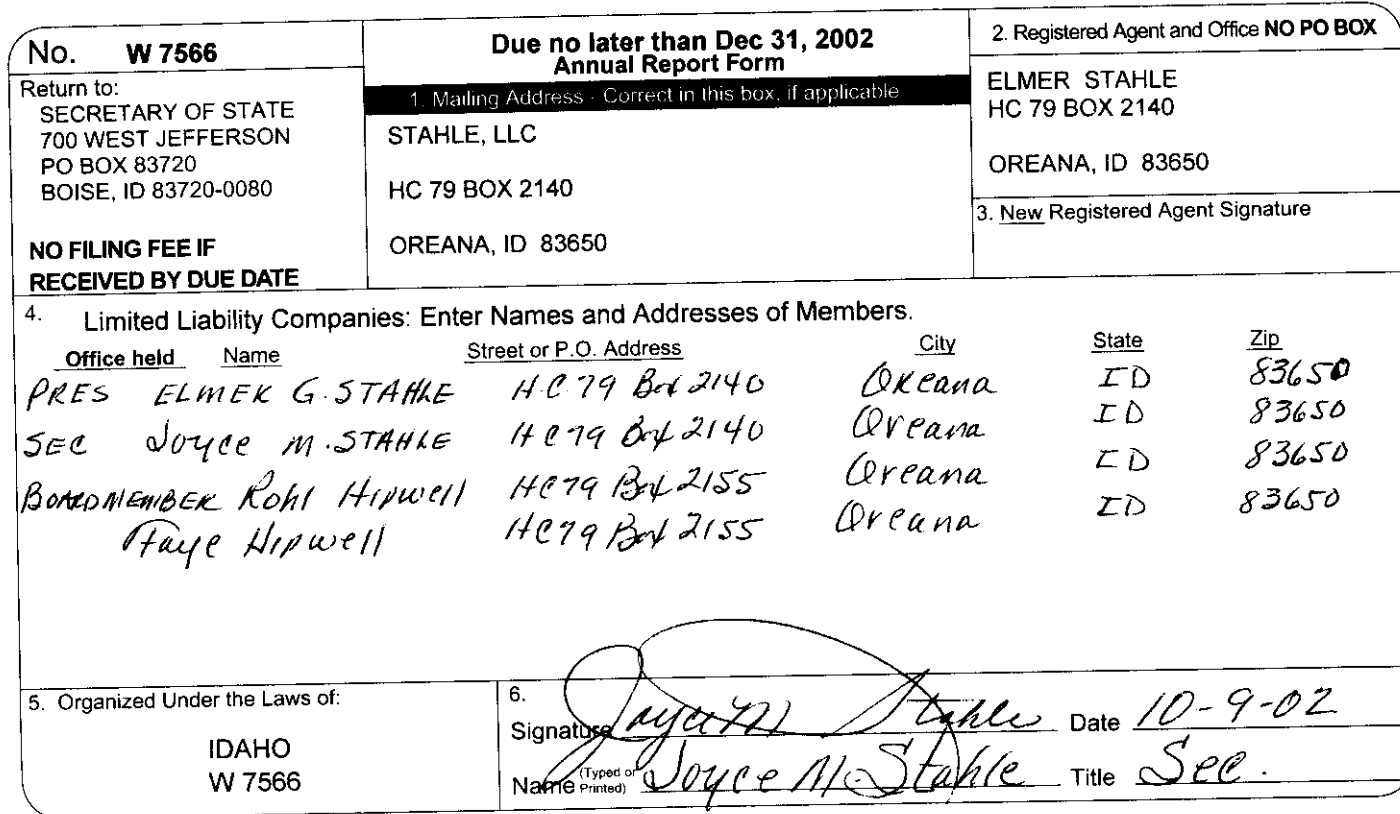 No. W 7566
Return to:
SECRETARY OF STATE
700 WEST JEFFERSON
PO BOX 83720
BOISE, ID 83720-0080
NO FILING FEE IF
RECEIVED BY DUE DATE
Due no later than Dec 31, 2002
Annual Report Form
1. Mailing Address - Correct in this box, if applicable
STAHLE, LLC
HC 79 BOX 2140
OREANA, ID 83650
2. Registered Agent and Office NO PO BOX
ELMER STAHLE
HC 79 BOX 2140
OREANA, ID 83650
3. New Registered Agent Signature
4. Limited Liability Companies: Enter Names and Addresses of Members.
Office held Name Street or P.O. Address City State Zip
PRES ELMER G. STAHLE H.C. 79 Box 2140 Oreana ID 83650
SEC Joyce M. STAHLE HC 79 Box 2140 Oreana ID 83650
BOARD MEMBER Rohl Hipwell HC 79 Box 2155 Oreana ID 83650
Faye Hipwell HC 79 Box 2155 Oreana ID 83650
5. Organized Under the Laws of:
IDAHO
W 7566
6.
Signature Joyce M Stahle Date 10-9-02
Name (Typed or Printed) Joyce M Stahle Title Sec.